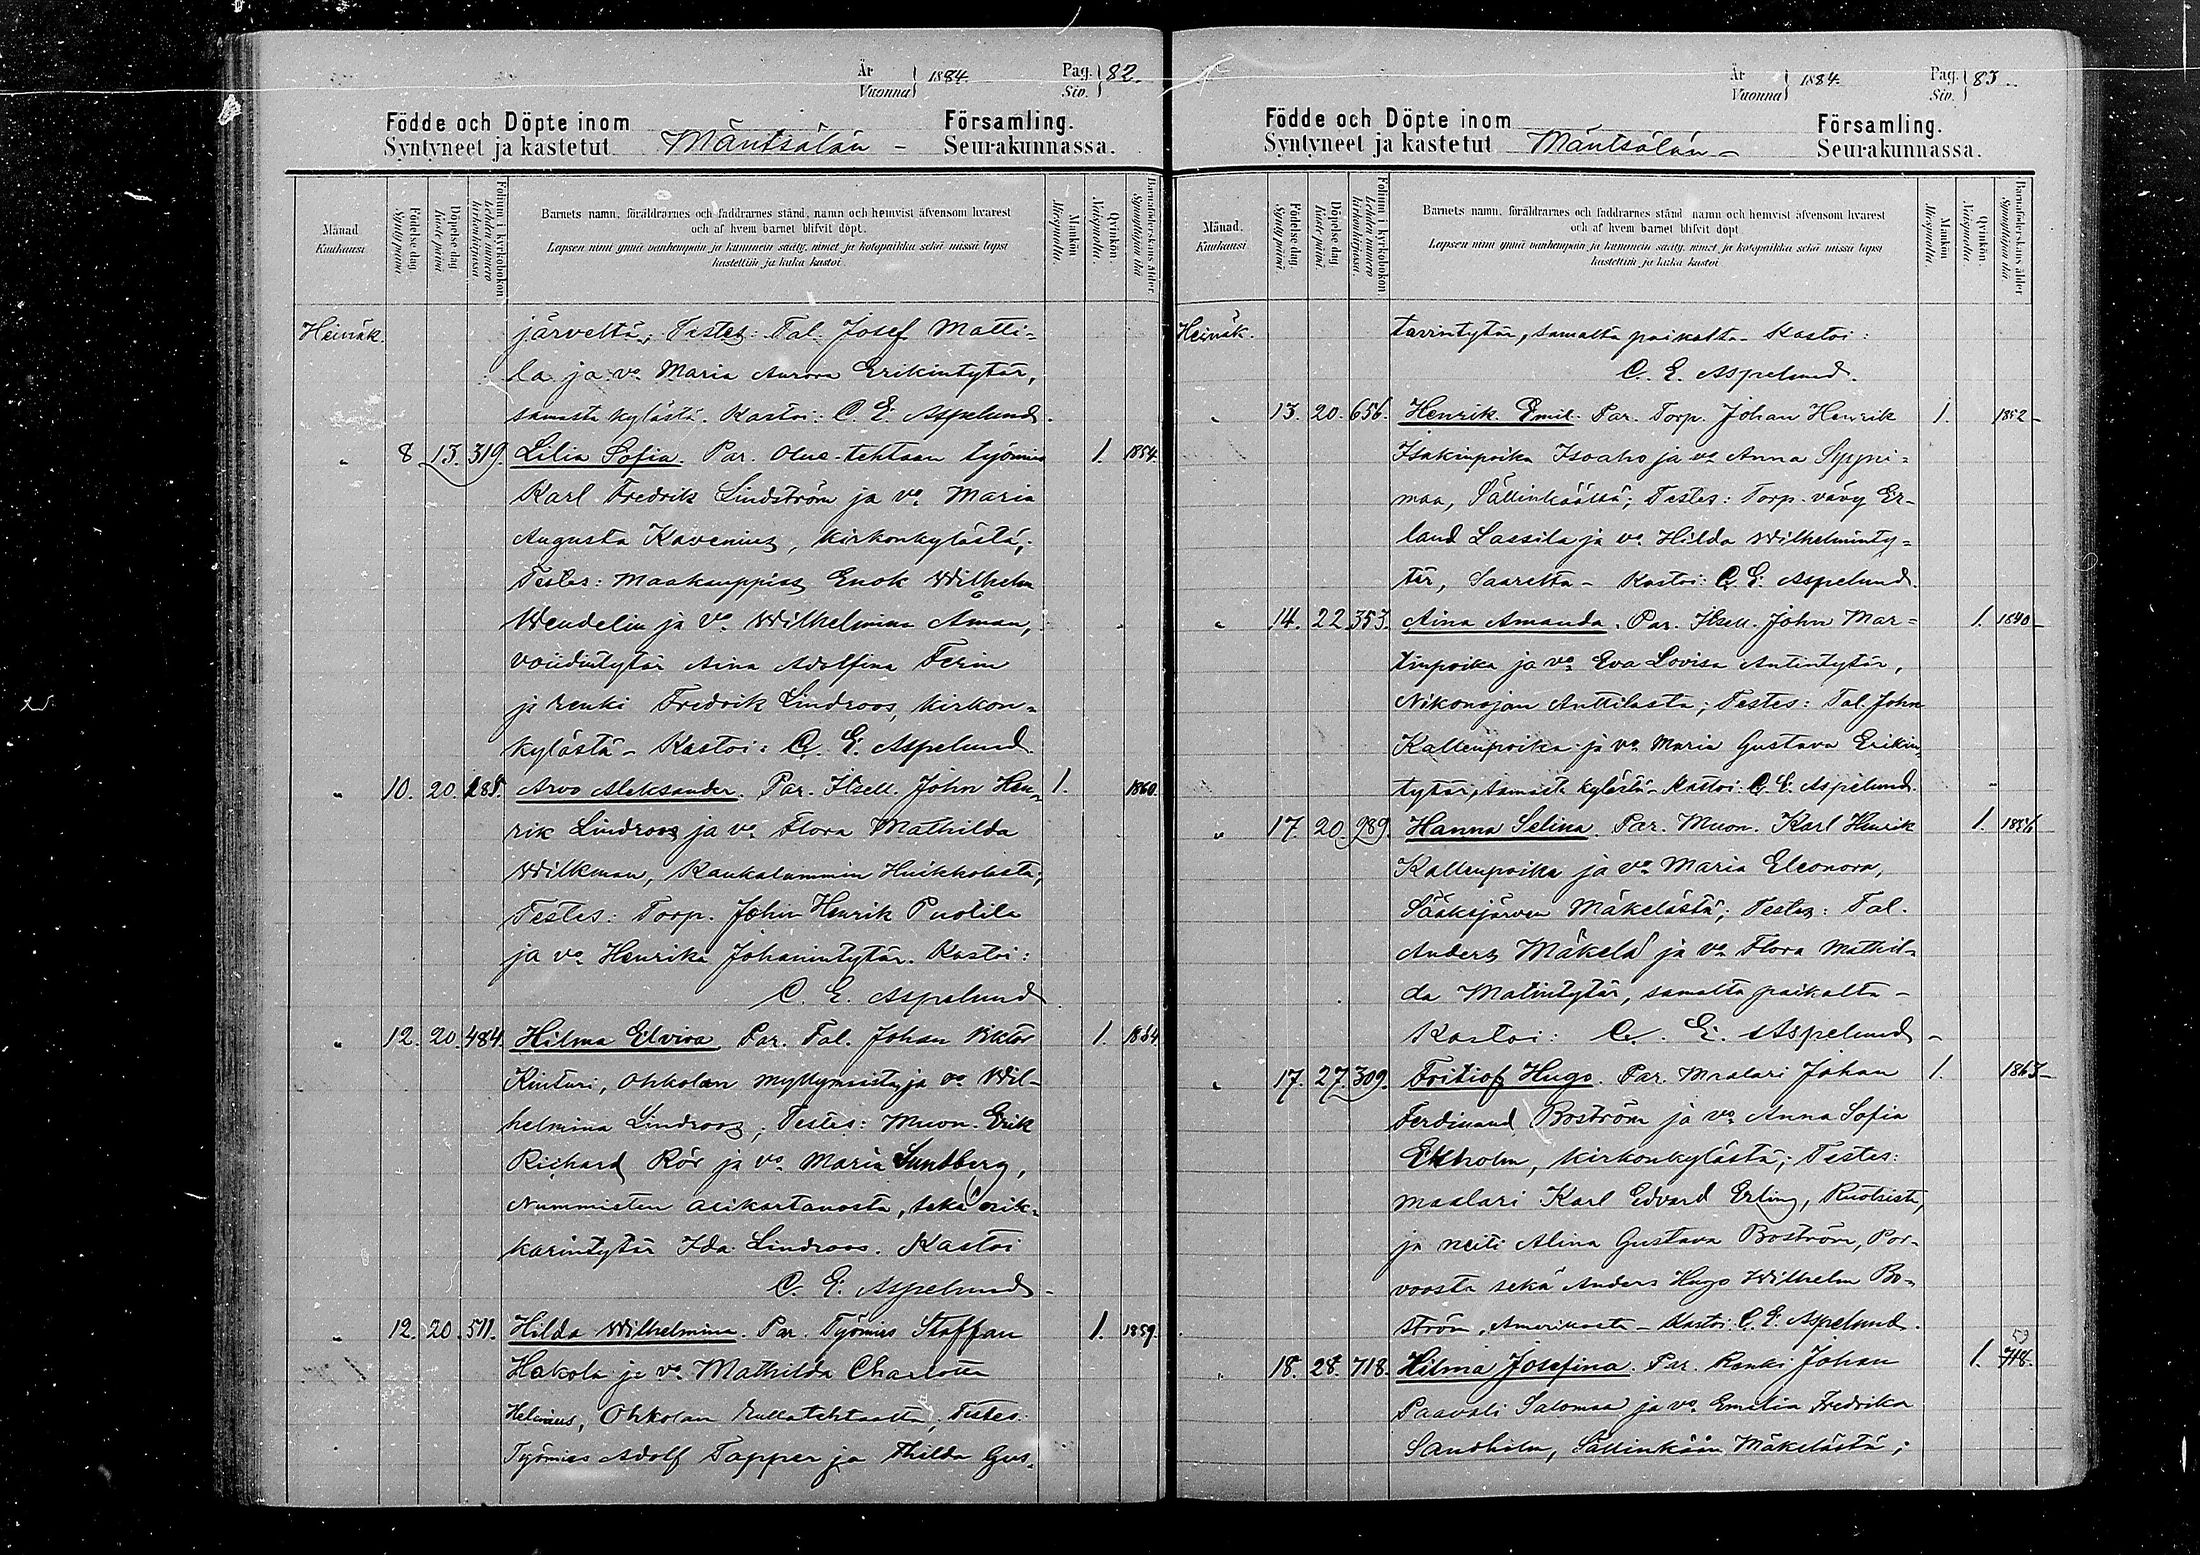 År
Vuonna } 1884.
Pag.
Siv. } 82.
Födde och Döpte inom
Syntyneet ja kastetut Mäntsälän –
Församling.
Seurakunnassa.
Månad
Kuukausi
Födelse dag.
Synty päivä.
Döpelse dag.
Kaste päivä.
Folium i kyrkobokon
Lehden numero
kirkonkirjassa.
Barnets namn, föräldrarnes och faddrarnes stånd, namn och hemvist äfvensom hvarest
och af hvem barnet blifvit döpt.
Lapsen nimi ynnä vanhempain ja kummein sääty, nimet ja kotopaikka sekä missä lapsi
kastettiin ja kuka kastoi
Mankön
Miespuolia.
Qvinkön.
Naispuolia.
Barnaföderskans ålder.
Synnyttäjän ikä.
Heinäk. järveltä; Testes: Tal. Josef Matti-
la ja vo. Maria Aurora Erikintytär,
samasta kylästä. Kastoi: C. E. Aspelund.
" 8 13. 319. Lilia Sofia. Par. Olue-tehtaan työmies 1. 1854.
Karl Fredrik Lindström ja vo. Maria
Augusta Kavenius, Kirkonkylästä;
Testes: Maakauppias Enok Wilhelm
Wendelin ja vo. Wilhelmina Aman,
voudintytär Aina Adolfina Ferin
ja renki Fredrik Lindroos, Kirkon-
kylästä – Kastoi: C. E. Aspelund
" 10. 20. 285. Arvo Aleksander. Par. Itsell. John Hen- 1. 1860.
rik Lindroos ja vo. Flora Mathilda
Wilkman, Kaukalammin Huikkolasta;
Testes: Torp. John Henrik Puolila
ja vo. Henrika Johanintytär. Kastoi:
C. E. Aspelund.
" 12. 20. 484. Hilma Elvira. Par. Tal. Johan Viktor 1.
Kinturi, Ohkolan myllymiistä ja vo. Wil-
helmina Lindroos; Testes: Muon. Erik
Richard Rör ja vo. Maria Sundberg,
Nummisten asikartanosta, sekä
karintytär Ida Lindroos. Kastoi
C. E. Aspelund –
" 12. 20. 511. Hilda Wilhelmina. Par. Työmies Staffan 1. 1859.
Hakola ja vo. Mathilda Charlotta
Helenius, Ohkolan tehtaalta; Testes:
Työmies Adolf Tapper ja Thilda Gus-
År
Vuonna } 1884.
Pag.
Siv. } 83.
Födde och Döpte inom
Syntyneet ja kastetut Mäntsälän –
Församling.
Seurakunnassa.
Månad.
Kuukausi
Födelse dag.
Synty päivä.
Döpelse dag.
Kaste päivä.
Folium i kyrkobokon
Lehden numero
kirkonkirjassa.
Barnets namn, föräldrarnes och faddrarnes stånd namn och hemvist äfvensom hvarest
och af hvem barnet blifvit döpt
Lapsen nimi ynnä vanhempain ja kummein sääty, nimet ja kotopaikka sekä missä lapsi
kastettiin ja kuka kastoi
Mankön
Miespuolia.
Qvinkön.
Naispuolia.
Barnaföderskans ålder
Synnyttäjän ikä.
Heinäk. tavintytär, samalta paikalta – Kastoi:
C. E. Aspelund.
" 13. 20. 656. Henrik Emil. Par. Torp. Johan Henrik 1. 1852 –
Isakinpoika Isoaho ja vo. Anna Syrjni-
maa, Sällinkäältä; Testes: Torp. vävy Er-
land Lassila ja vo. Hilda Wilhelminty-
tär, Saarelta – Kastoi: C. E. Aspelund.
" 14. 22. 353. Aina Amanda. Par. Itsell. John Mar- 1. 1840 –
tinpoika ja vo. Eva Lovisa Antintytär,
Nikonojan Anttilasta; Testes: Tal. John
Kallenpoika ja vo. Maria Gustava Erikin-
tytär, samasta kylästä – Kastoi: C. E. Aspelund.
" 17. 20. 989. Hanna Selina. Par. Muon. Karl Henrik 1. 1856
Kallenpoika ja vo. Maria Eleonora,
Sääksjärven Mäkelästä; Testes: Tal.
Anders Mäkelä ja vo. Flora Mathil-
da Matintytär, samalta paikalta –
Kastoi: C. E. Aspelund –
" 17. 27. 309. Fritiof Hugo. Par. Maalari Johan 1. 1863 –
Ferdinand Boström ja vo. Anna Sofia
Ekholm, Kirkonkylästä; Testes:
maalari Karl Edvard Erling, Ruotsista,
ja neiti Alina Gustava Boström, Por-
voosta sekä Anders Hugo Wilhelm Bo-
ström, Amerikasta – Kastoi: C. E. Aspelund.
" 18. 28. 718. Hilma Josefina. Par. Renki Johan 1. 59 718.
Paavali Salomaa ja vo. Emilia Fredrika
Sandholm, Sällinkään Mäkelästä;